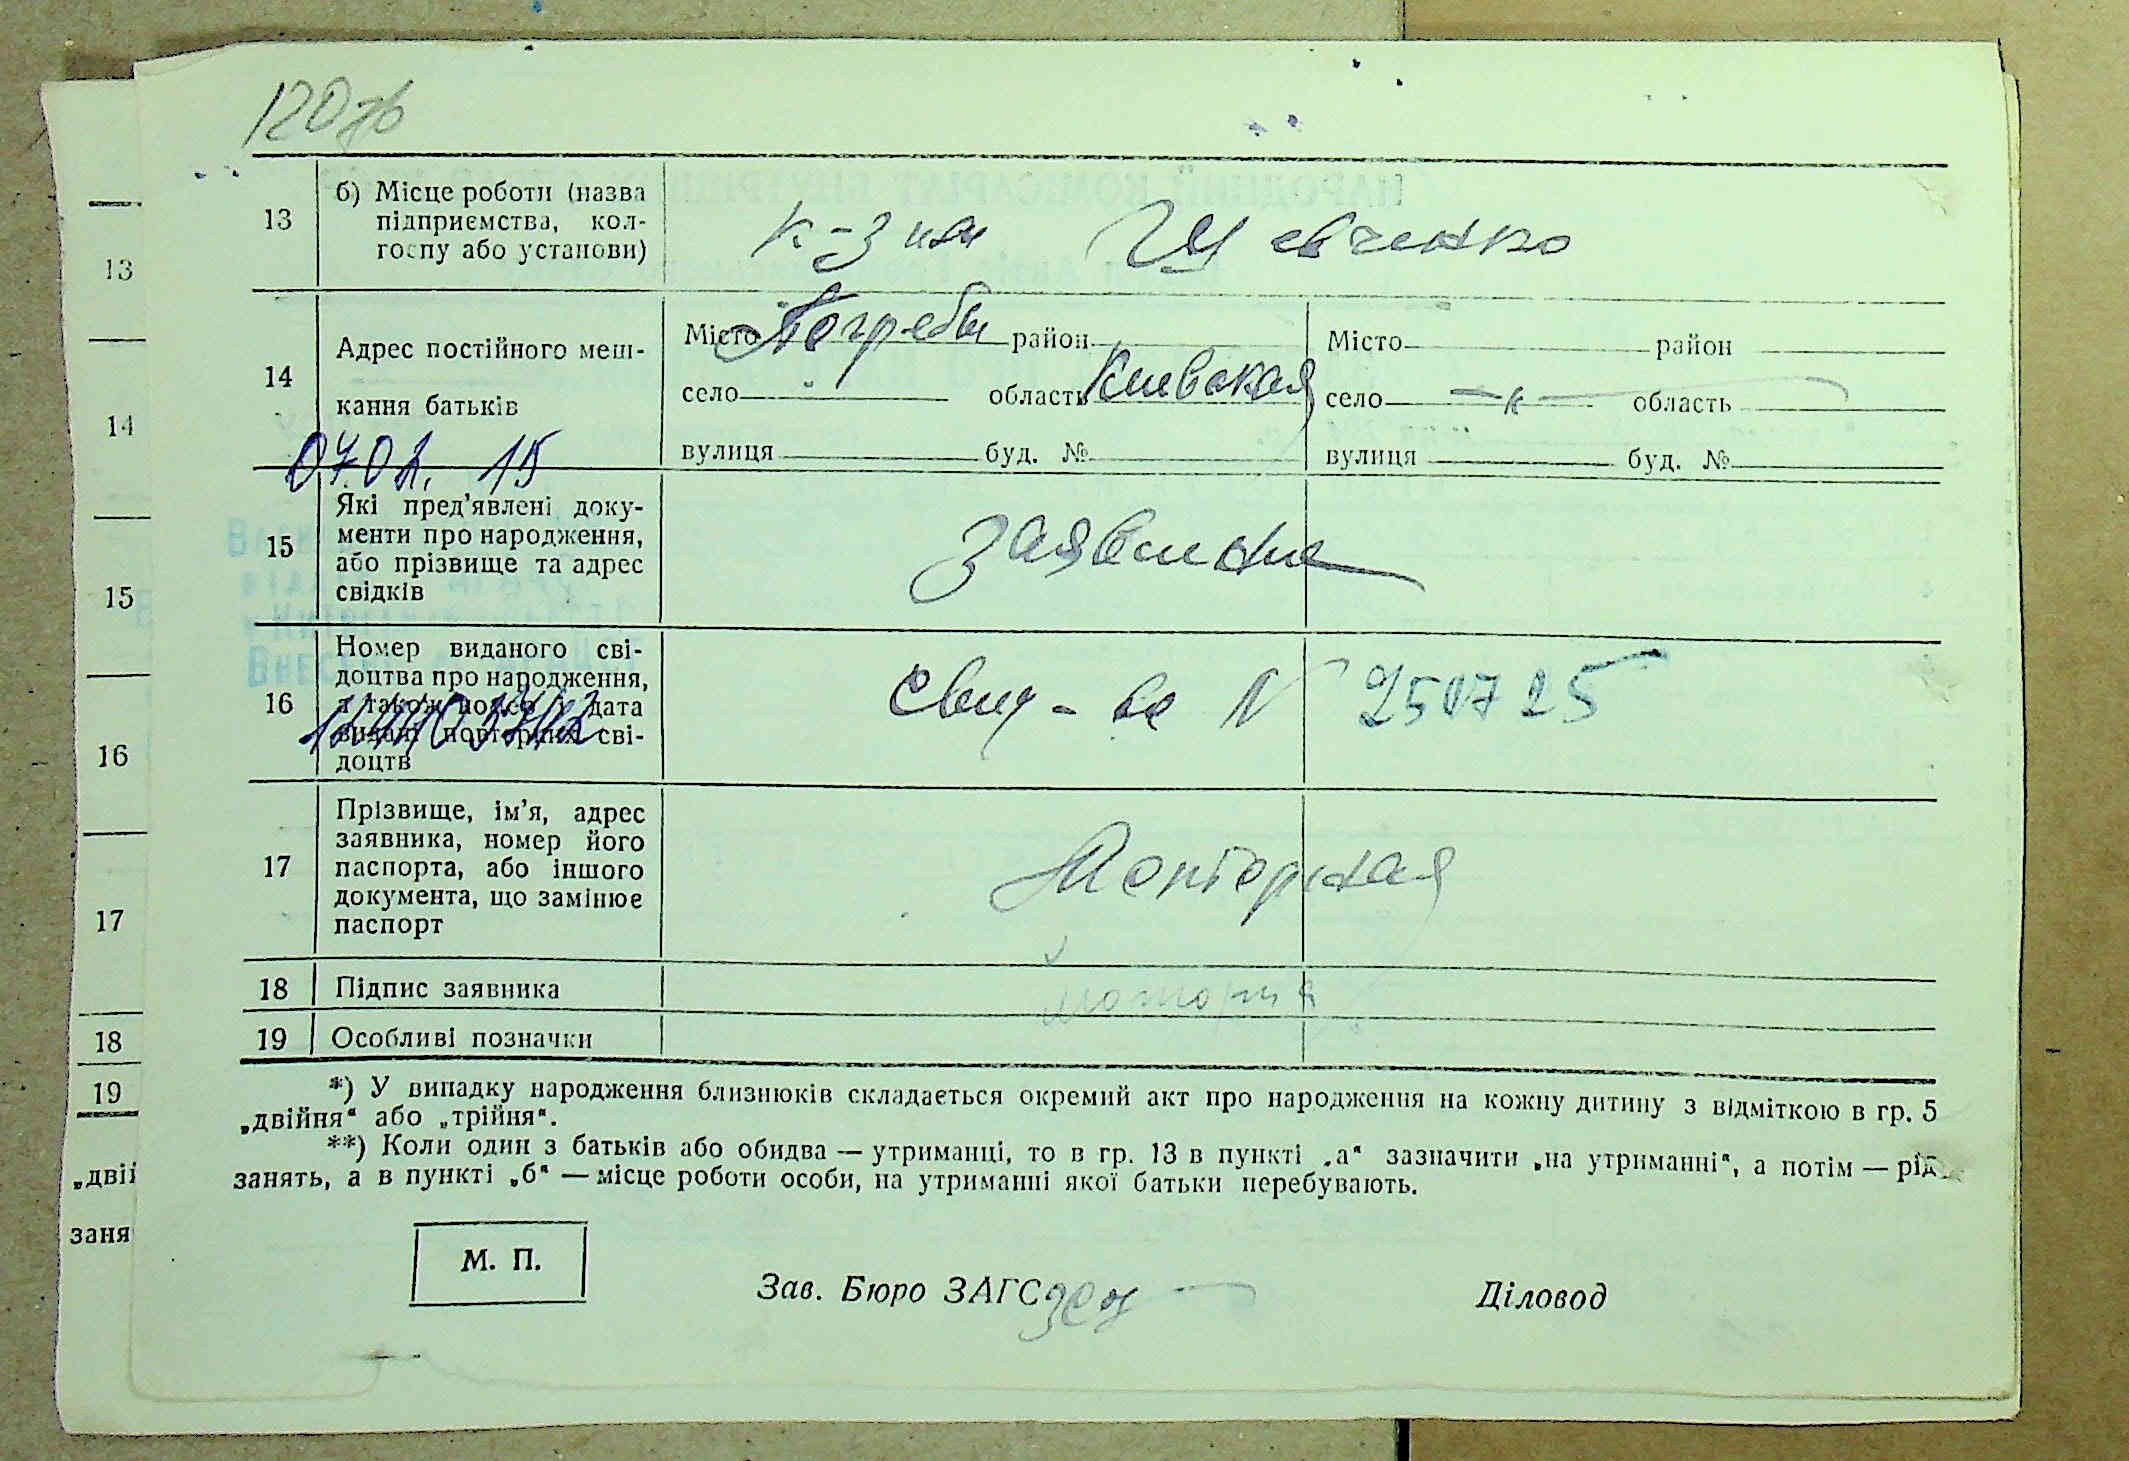 120зв
13
б) Місце роботи (назва
підприємства, кол-
госпу або установи)
к-з им Шевченко
14
Адрес постійного меш-
кання батьків
Місто Погребы район
село область Киевская
вулиця буд. №
Місто район
село -„- область
вулиця буд. №
07.02.15
15
Які пред'явлені доку-
менти про народження,
або прізвище та адрес
свідків
заявление
16
Номер виданого сві-
доцтва про народження,
а також номер і дата
видачі повторних сві-
доцтв
Свид-во N 250725
17
Прізвище, ім'я, адрес
заявника, номер його
паспорта, або іншого
документа, що замінює
паспорт
18
Підпис заявника
19
Особливі позначки
*) У випадку народження близнюків складається окремий акт про народження на кожну дитину з відміткою в гр. 5
„двійня“ або „трійня“.
**) Коли один з батьків або обидва — утриманці, то в гр. 13 в пункті „а“ зазначити „на утриманні“, а потім — рід
занять, а в пункті „б“ — місце роботи особи, на утриманні якої батьки перебувають.
М. П.
Зав. Бюро ЗАГС
Діловод
13
14
15
16
17
18
19
„двій
заня